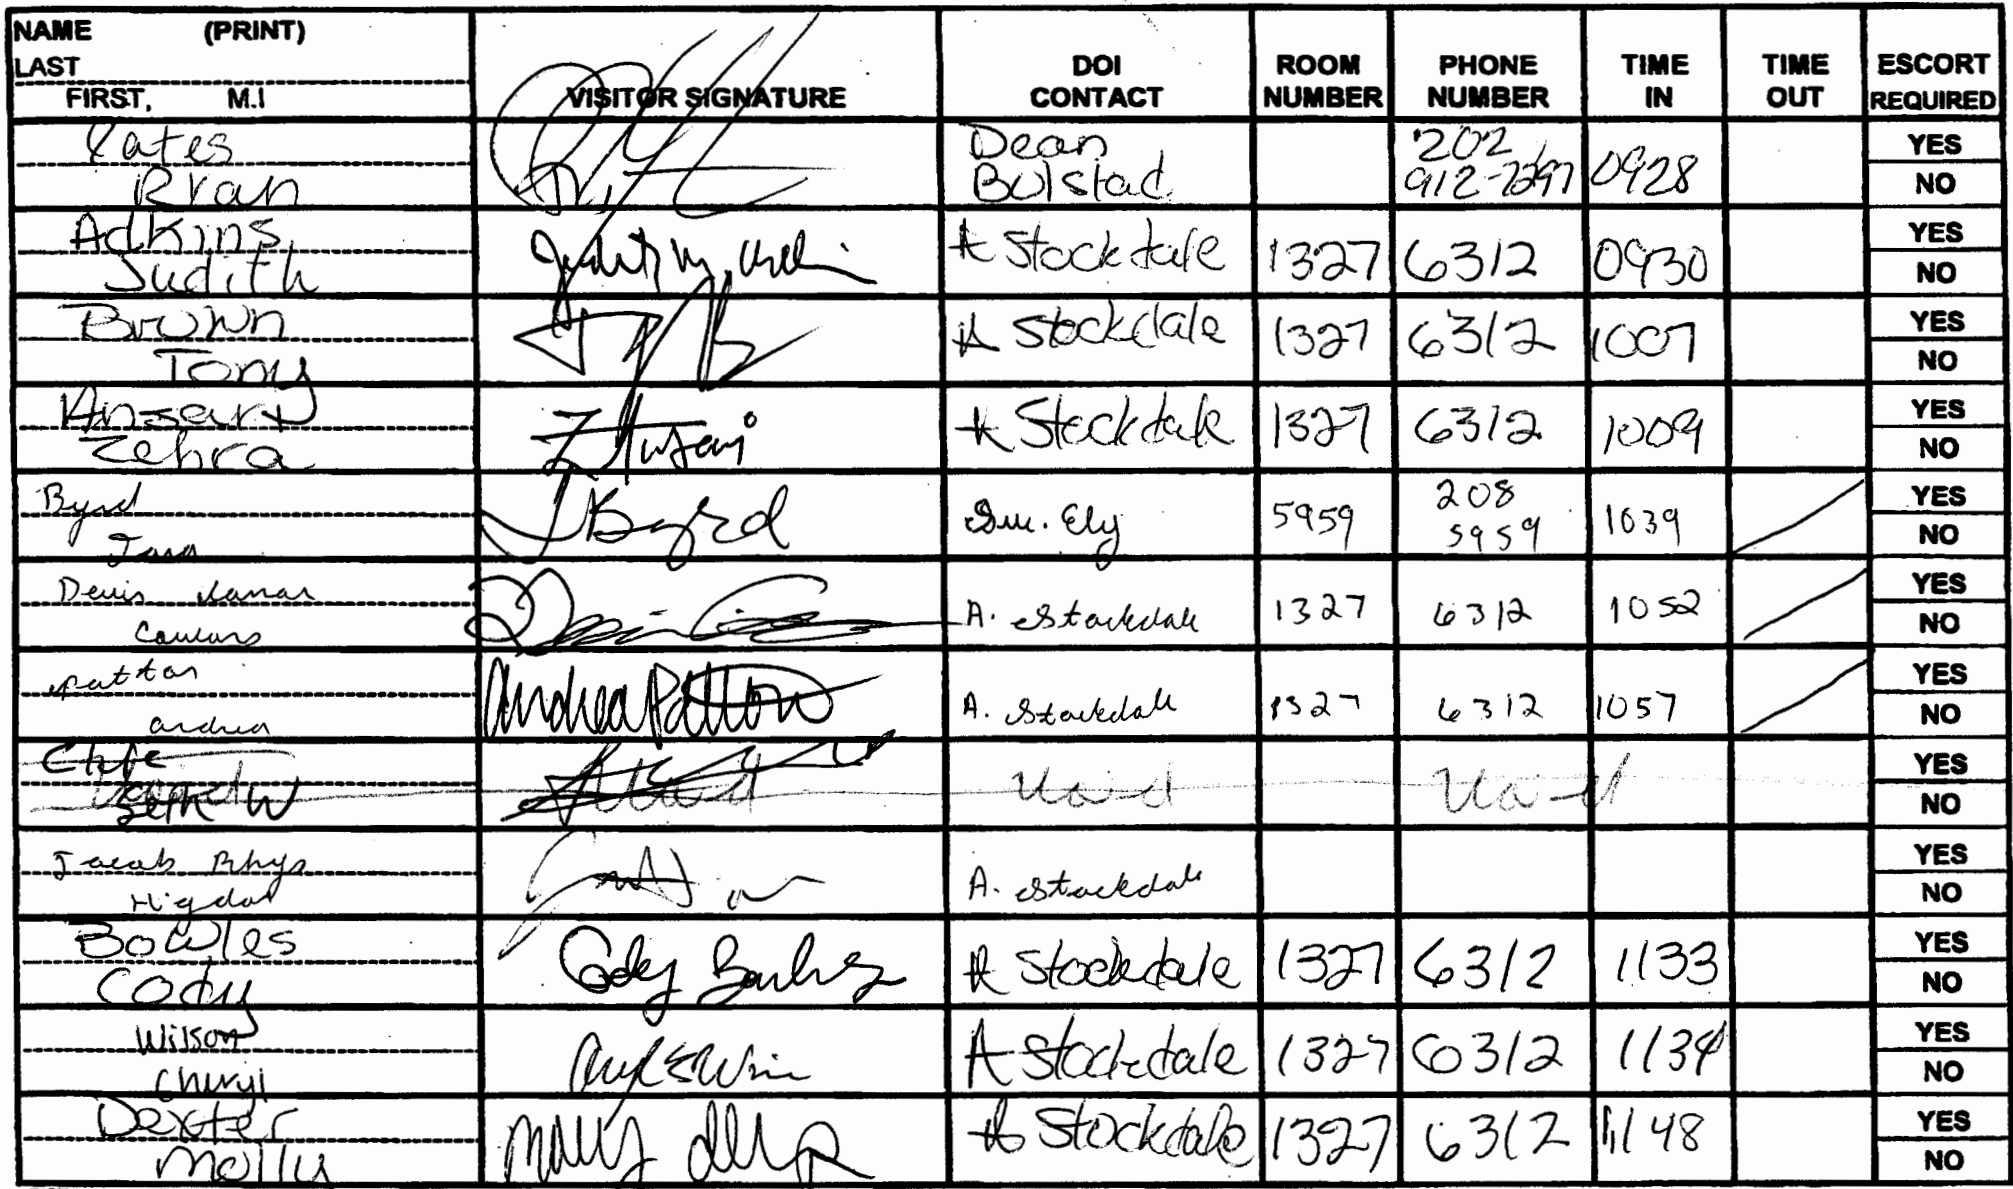 NAME (PRINT)
LAST
FIRST, M.I
VISITOR SIGNATURE
DOI CONTACT
ROOM NUMBER
PHONE NUMBER
TIME IN
TIME OUT
ESCORT REQUIRED
Yates Ryan Dean Bolstad 202 912-7297 0928 YES NO
Adkins Judith A Stockdale 1327 6312 0930 YES NO
Brown Tony A Stockdale 1327 6312 1007 YES NO
Ansari Zehra A Stockdale 1327 6312 1009 YES NO
Byrd Tara J Byrd Ely 5959 208 5959 1039 YES NO
Denis A. Stockdale 1327 6312 1052 YES NO
Patton Andrea Andrea Patton A. Stockdale 1327 6312 1057 YES NO
Void Void YES NO
Jacob Rhys Higdon A. Stockdale YES NO
Bowles Cody Cody Bowles A Stockdale 1327 6312 1133 YES NO
Wilson Cheryl A Stockdale 1327 6312 1134 YES NO
Dexter Molly Molly A Stockdale 1327 6312 1148 YES NO